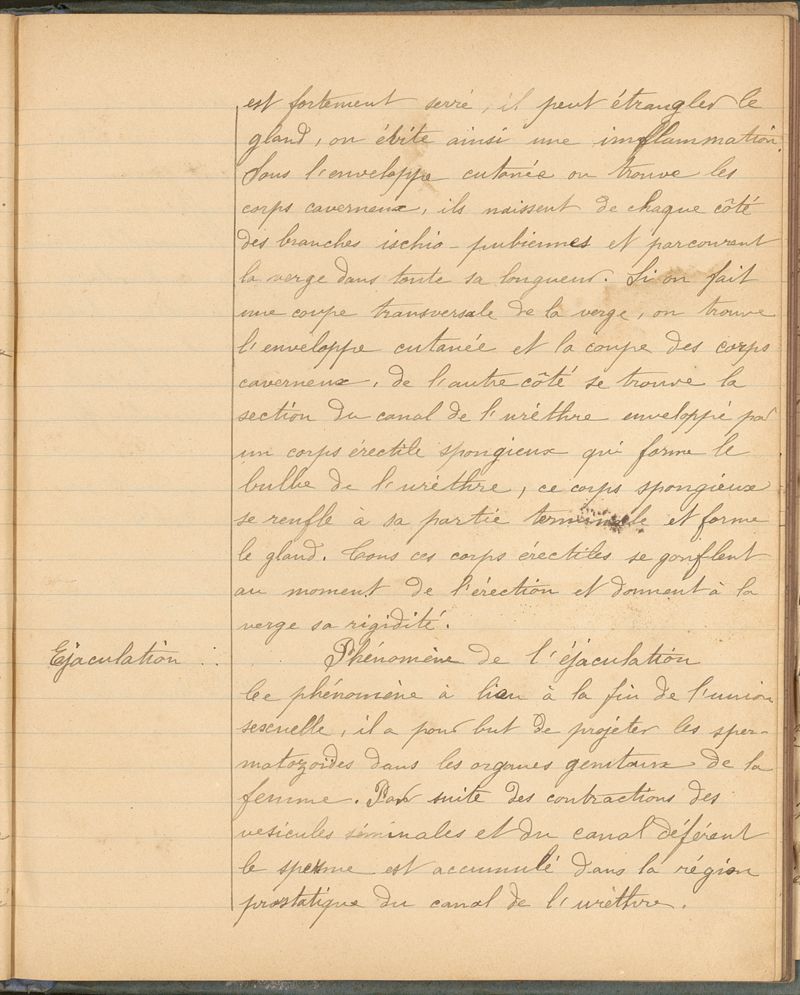 est fortement serré, il peut étrangler le
gland, on évite ainsi une imflammation.
Sous l'enveloppe cutanée on trouve les
corps caverneux, ils naissent de chaque côté
des branches ischio-pubiennes et parcourent
la verge dans toute sa longueur. Si on fait
une coupe transversale de la verge, on trouve
l'enveloppe cutanée et la coupe des corps
caverneux, de l'autre côté se trouve la
section du canal de l'uréthre enveloppé par
un corps érectile spongieux qui forme le
bulbe de l'uréthre, ce corps spongieux
se renfle à sa partie terminale et forme
le gland. Tous ces corps érectiles se gonflent
au moment de l'érection et donnent à la
verge sa rigidité.
Ejaculation :. Phénomène de l'éjaculation
Ce phénomène à lieu à la fin de l'union
sexuelle, il a pour but de projeter les sper-
matozoïdes dans les organes genitaux de la
femme. Par suite des contractions des
vesicules séminales et du canal déférent
le sperme est accumulé dans la région
prostatique du canal de l'uréthre.